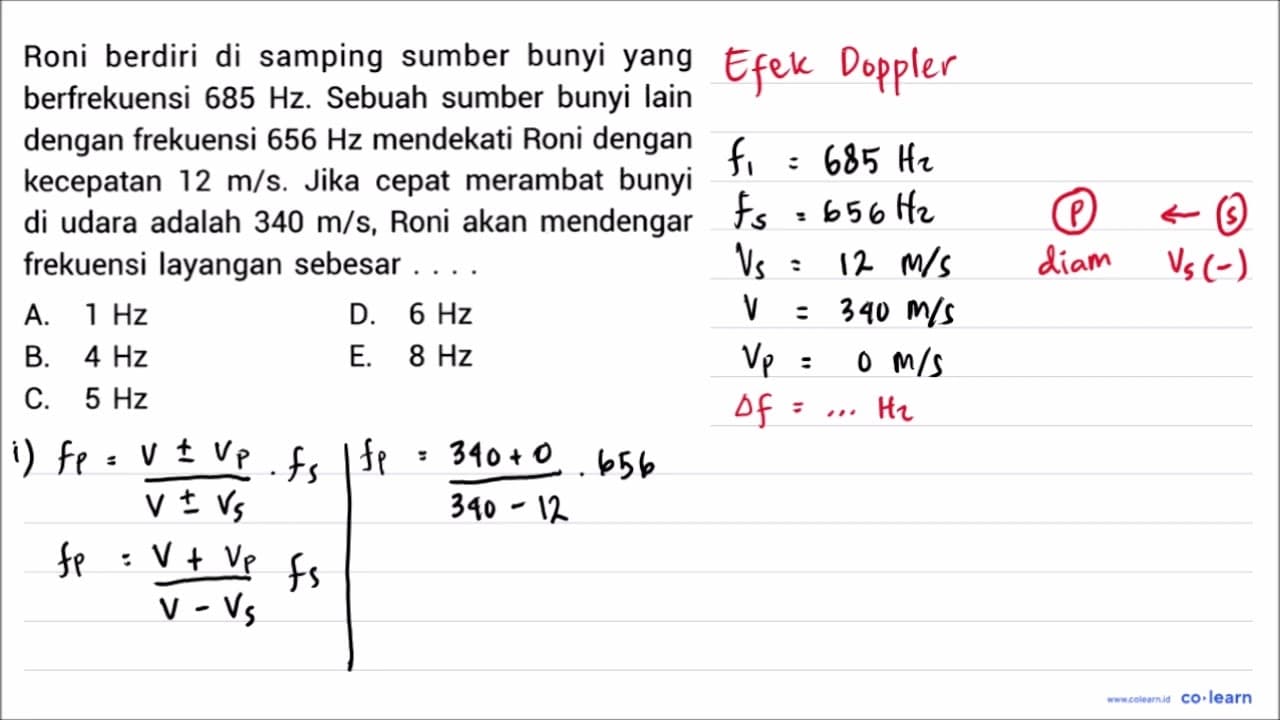 Roni berdiri di samping sumber bunyi yang
berfrekuensi 685 Hz. Sebuah sumber bunyi lain
dengan frekuensi 656 Hz mendekati Roni dengan
kecepatan 12 m/s. Jika cepat merambat bunyi
di udara adalah 340 m/s, Roni akan mendengar
frekuensi layangan sebesar . . . .
A. 1 Hz
B. 4 Hz
C. 5 Hz
D. 6 Hz
E. 8 Hz
Efek Doppler
f₁ = 685 Hz
fs = 656 Hz
Vs = 12 m/s
V = 340 m/s
Vp = 0 m/s
Δf = ... Hz
P ← S
diam Vs (-)
i) fp = (V ± Vp) / (V ± Vs) . fs
fp = (V + Vp) / (V - Vs) fs
fp = (340 + 0) / (340 - 12) . 656
www.colearn.id co·learn